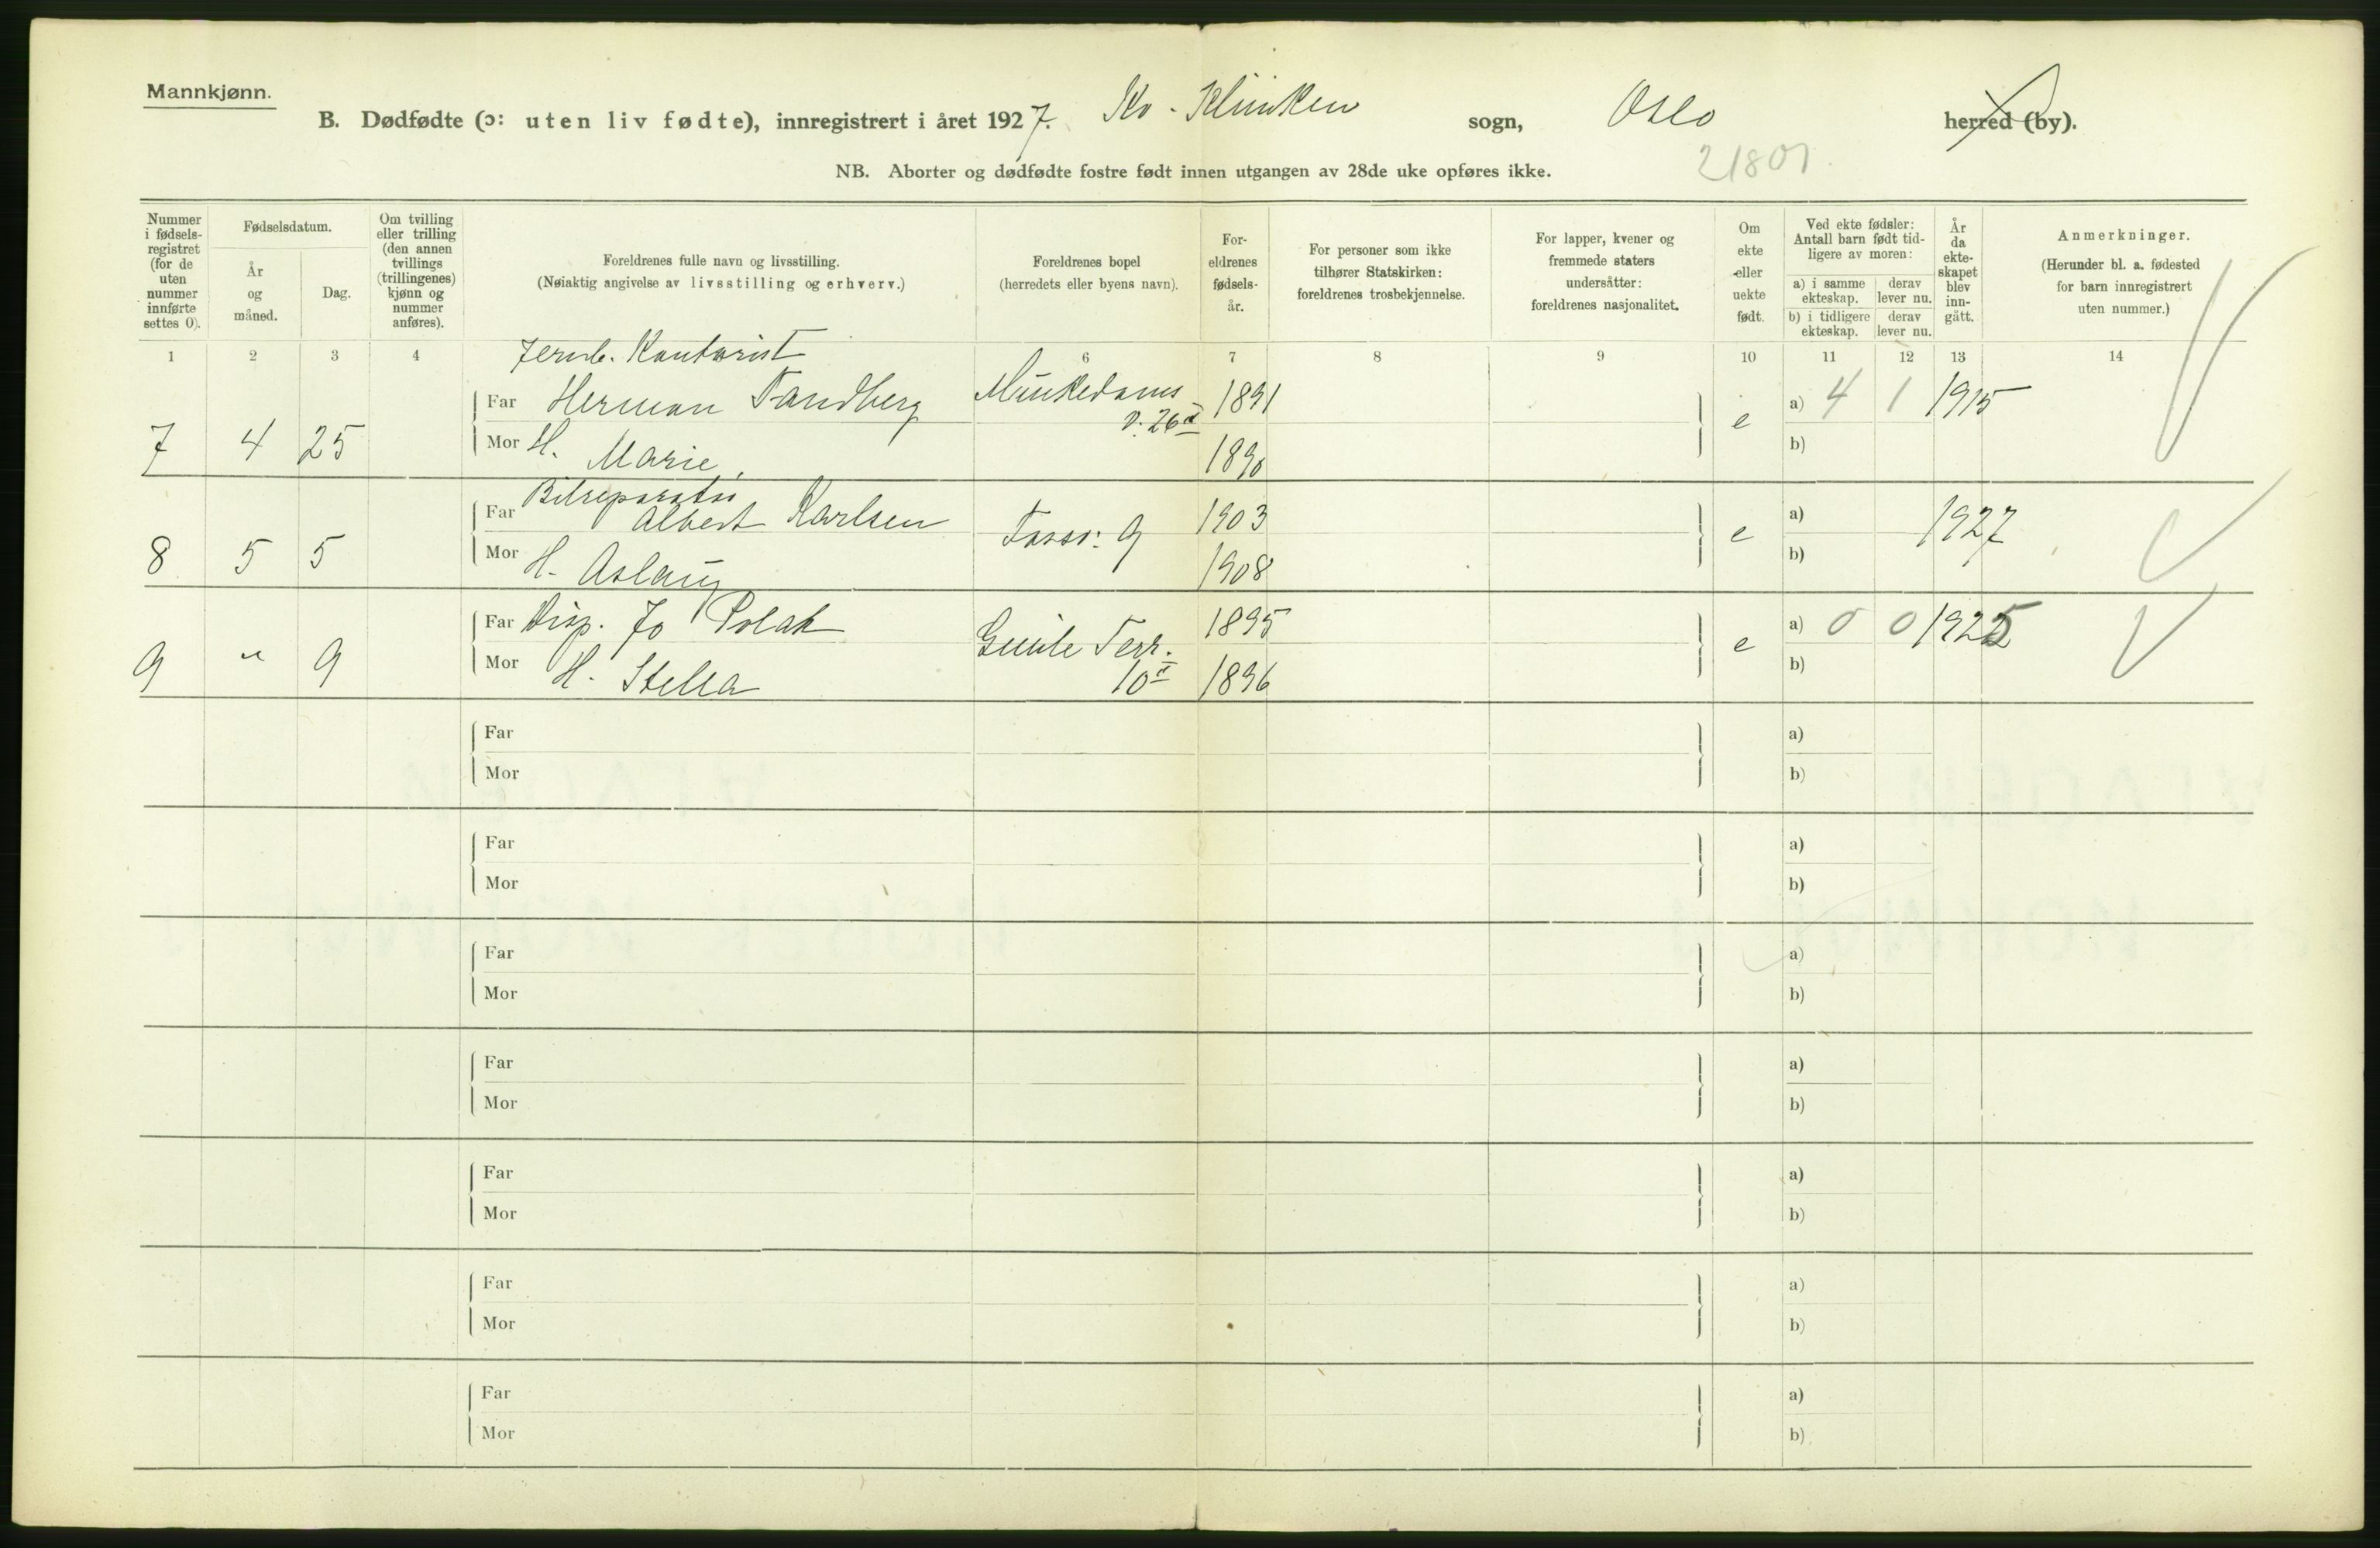 Mannkjønn.
B. Dødfødte (ɔ: uten liv fødte), innregistrert i året 1927. Kv-Klinken sogn, Oslo herred (by).
NB. Aborter og dødfødte fostre født innen utgangen av 28de uke opføres ikke.
21801
Nummer i fødsels-registret (for de uten nummer innførte settes 0).
Fødselsdatum.
År og måned.
Dag.
Om tvilling eller trilling (den annen tvillings (trillingenes) kjønn og nummer anføres).
Foreldrenes fulle navn og livsstilling.
(Nøiaktig angivelse av livsstilling og erhverv.)
Foreldrenes bopel
(herredets eller byens navn).
For-eldrenes fødsels-år.
For personer som ikke tilhører Statskirken: foreldrenes trosbekjennelse.
For lapper, kvener og fremmede staters undersåtter: foreldrenes nasjonalitet.
Om ekte eller uekte født.
Ved ekte fødsler: Antall barn født tid-ligere av moren:
a) i samme ekteskap. derav lever nu.
b) i tidligere ekteskap. derav lever nu.
År da ekte-skapet blev inn-gått.
Anmerkninger.
(Herunder bl. a. fødested for barn innregistrert uten nummer.)
1 2 3 4 6 7 8 9 10 11 12 13 14
Jernb. Kontorist
Far Herman Tandberg Munkedams v. 26 1891 a) 4 1 1915
7 4 25 Mor H. Marie. 1890 e b)
Bilreparatør
Far Albert Karlsen 1903 a) 1927
8 5 5 Mor H. Aslaug 9 1908 e b)
Far Disp. Jo Polak Terr. 1895 a) 0 0 1925
9 " 9 Mor H. Stella 10 1896 e b)
Far a)
Mor b)
Far a)
Mor b)
Far a)
Mor b)
Far a)
Mor b)
Far a)
Mor b)
Far a)
Mor b)
Far a)
Mor b)